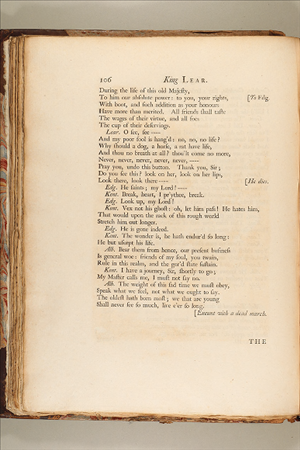 106 King LEAR.
During the life of this old Majesty,
To him our absolute power: to you, your rights, [To Edg.
With boot, and such addition as your honours
Have more than merited. All friends shall taste
The wages of their virtue, and all foes
The cup of their deservings.
Lear. O see, see —
And my poor fool is hang'd: no, no, no life?
Why should a dog, a horse, a rat have life,
And thou no breath at all? thou'lt come no more,
Never, never, never, never, never, —
Pray you, undo this button. Thank you, Sir;
Do you see this? look on her, look on her lips,
Look there, look there — [He dies.
Edg. He faints; my Lord! —
Kent. Break, heart, I pr'ythee, break.
Edg. Look up, my Lord!
Kent. Vex not his ghost: oh, let him pass! He hates him,
That would upon the rack of this rough world
Stretch him out longer.
Edg. He is gone indeed.
Kent. The wonder is, he hath endur'd so long:
He but usurpt his life.
Alb. Bear them from hence, our present business
Is general woe: friends of my soul, you twain,
Rule in this realm, and the gor'd state sustain.
Kent. I have a journey, Sir, shortly to go;
My Master calls me, I must not say no.
Alb. The weight of this sad time we must obey,
Speak what we feel, not what we ought to say.
The oldest hath born most; we that are young
Shall never see so much, live e'er so long.
[Exeunt with a dead march.
THE